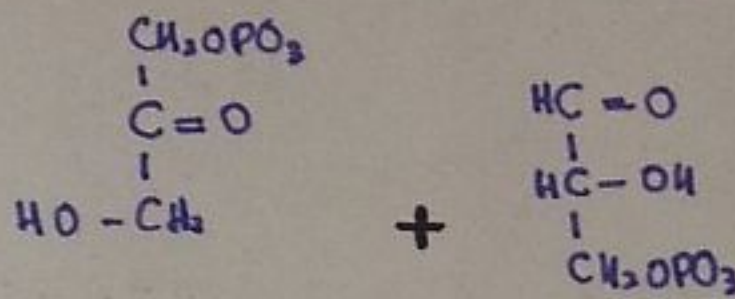 CH₂OPO₃
C=O
HO-CH₂
+
HC=O
HC-OH
CH₂OPO₃